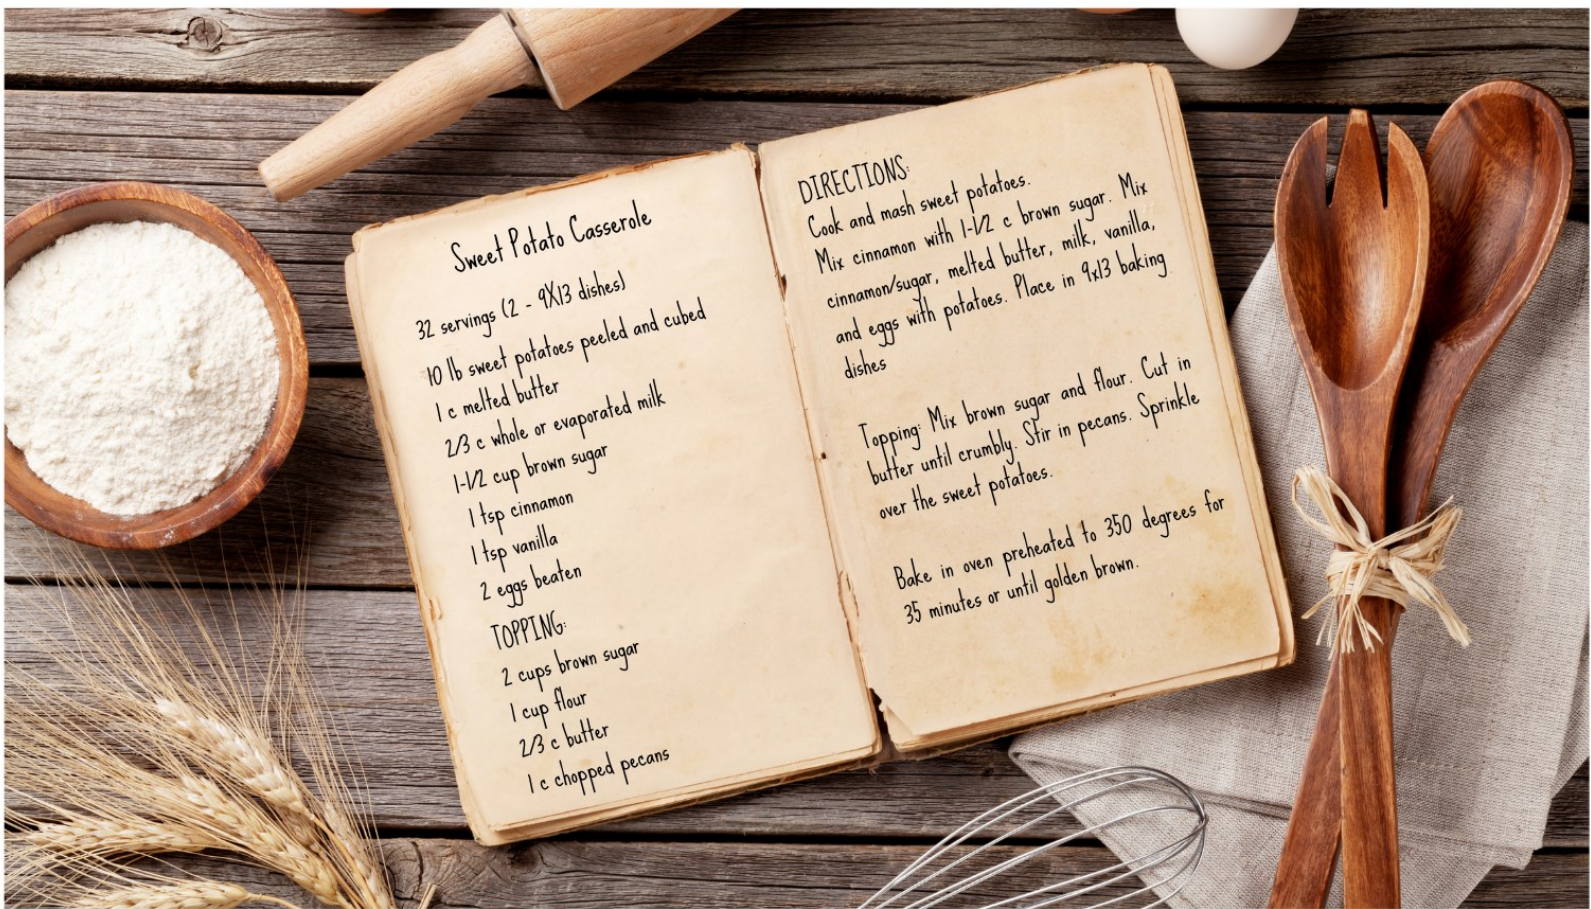 Sweet Potato Casserole
32 servings (2 - 9X13 dishes)
10 lb sweet potatoes peeled and cubed
1 c melted butter
2/3 c whole or evaporated milk
1-1/2 cup brown sugar
1 tsp cinnamon
1 tsp vanilla
2 eggs beaten
TOPPING:
2 cups brown sugar
1 cup flour
2/3 c butter
1 c chopped pecans
DIRECTIONS:
Cook and mash sweet potatoes.
Mix cinnamon with 1-1/2 c brown sugar. Mix
cinnamon/sugar, melted butter, milk, vanilla,
and eggs with potatoes. Place in 9x13 baking
dishes
Topping: Mix brown sugar and flour. Cut in
butter until crumbly. Stir in pecans. Sprinkle
over the sweet potatoes.
Bake in oven preheated to 350 degrees for
35 minutes or until golden brown.